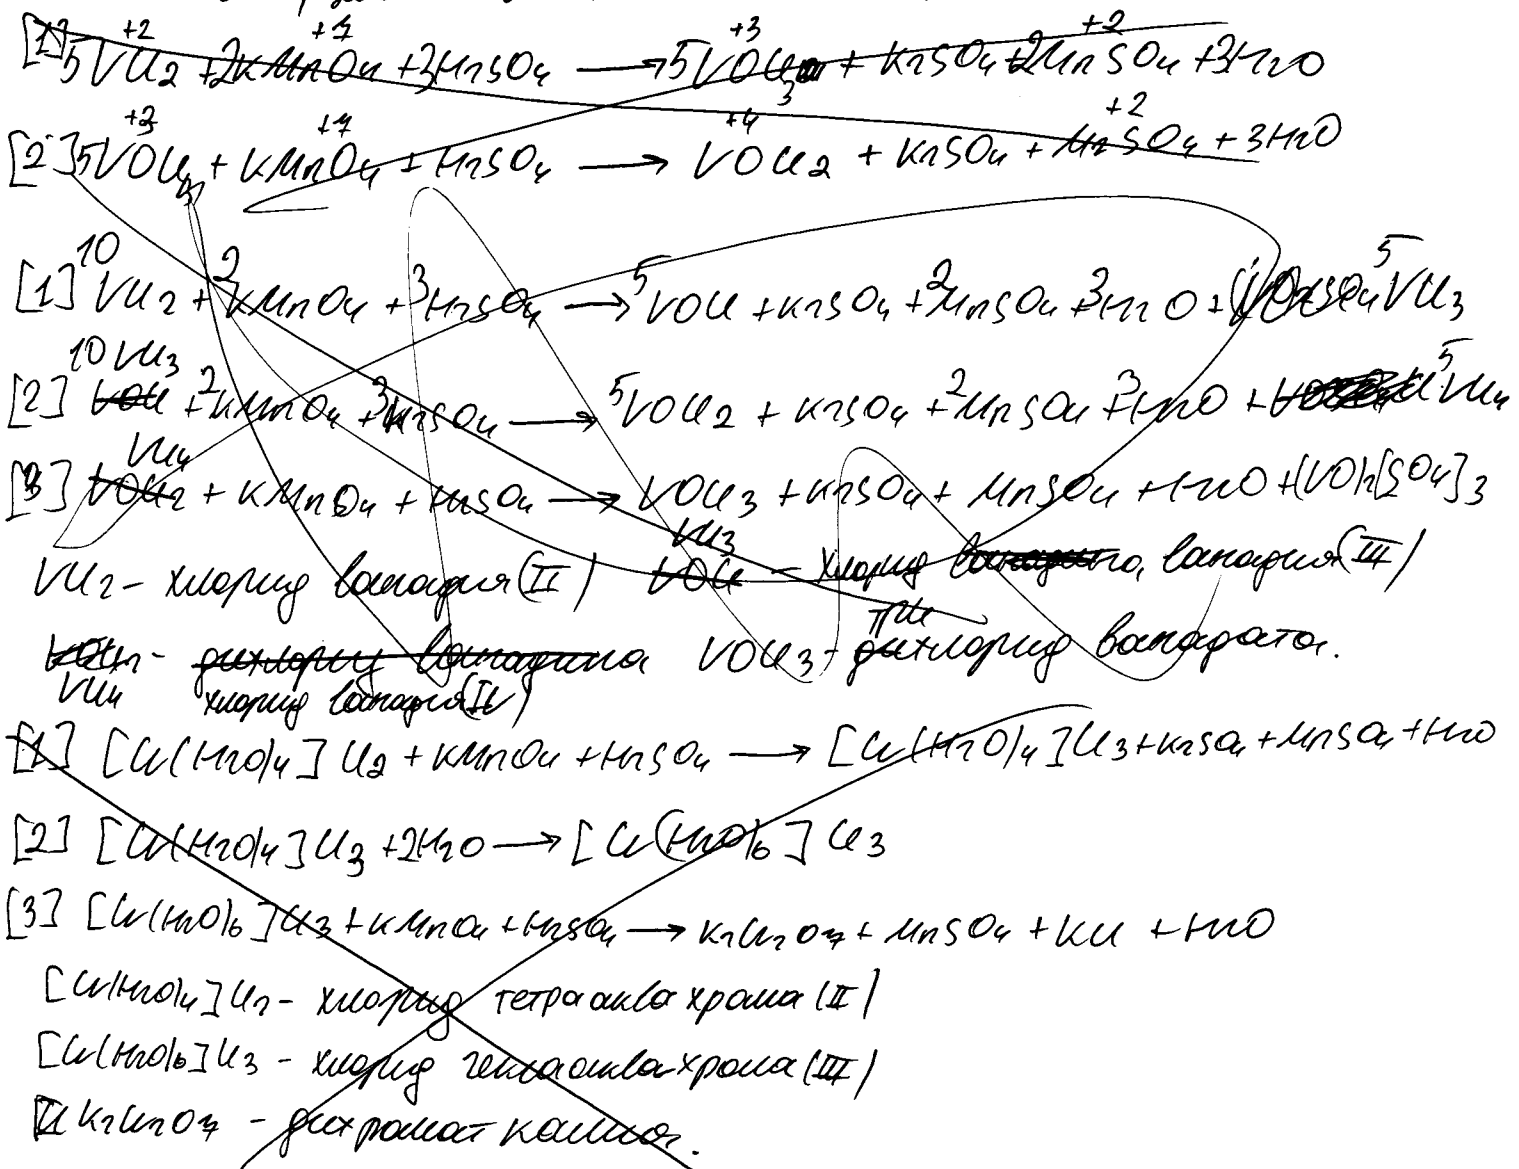 [1] 5VCl2 + 2KMnO4 + 3H2SO4 → 5VOCl3 + K2SO4 + 2MnSO4 + 3H2O
[2] 5VOCl + KMnO4 + H2SO4 → VOCl2 + K2SO4 + MnSO4 + 3H2O
[1] 10VCl2 + 2KMnO4 + 3H2SO4 → 5VOCl + K2SO4 + 2MnSO4 + 3H2O + 5VCl3
[2] 10VCl3 + 2KMnO4 + 3H2SO4 → 5VOCl2 + K2SO4 + 2MnSO4 + 3H2O + 5VCl4
[3] VCl4 + KMnO4 + H2SO4 → VOCl3 + K2SO4 + MnSO4 + H2O + (VO)2[SO4]3
VCl2 - хлорид ванадия (II) VCl3 - хлорид ванадия (III)
VCl4 хлорид ванадия (IV) VOCl3 - трихлорид ванадата.
[1] [Cr(H2O)4]Cl2 + KMnO4 + H2SO4 → [Cr(H2O)4]Cl3 + K2SO4 + MnSO4 + H2O
[2] [Cr(H2O)4]Cl3 + 2H2O → [Cr(H2O)6]Cl3
[3] [Cr(H2O)6]Cl3 + KMnO4 + H2SO4 → K2Cr2O7 + MnSO4 + KCl + H2O
[Cr(H2O)4]Cl2 - хлорид тетрааквахрома (II)
[Cr(H2O)6]Cl3 - хлорид гексааквахрома (III)
K2Cr2O7 - дихромат калия.